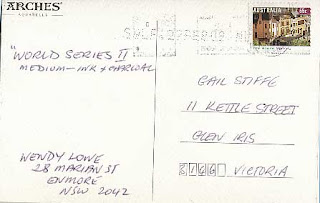 ARCHES
"WORLD SERIES II
MEDIUM — INK & CHARCOAL
WENDY LOWE
28 MARIAN ST
ENMORE
NSW 2042
AUSTRALIA
GAIL STIFFE
11 KETTLE STREET
GLEN IRIS
VICTORIA